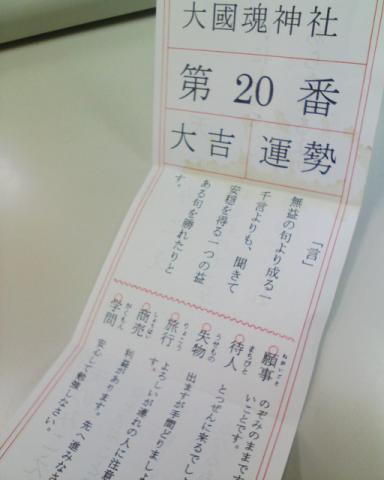 大國魂神社
第20番
大吉
運勢
「言」
無益の句より成る一
千言よりも、聞きて
安穏を得る一つの益
ある句を勝れたりと
す。
願事 のぞみのままです
いことです。
待人 とつぜんに来るでし
失物 出ますが手間どりましょ
旅行 よろしいが連れの人に注意
す。
商売 利益があります。先へ進みなさ
学問 安心して勉強しなさい。